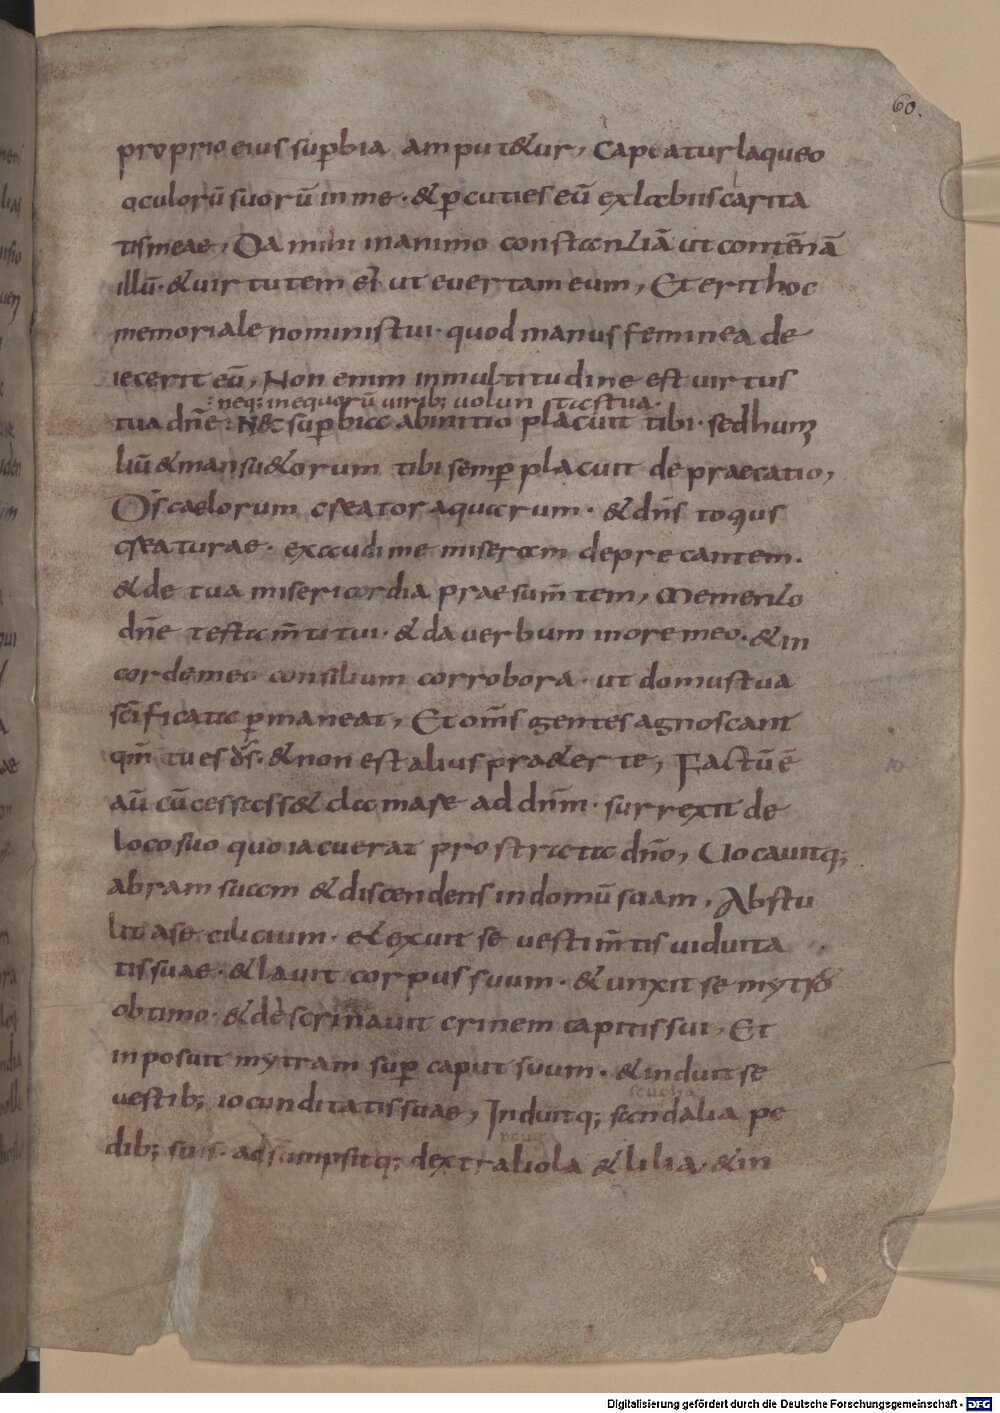 60.
proprio eius suꝑbia amput&ur, Capeatur laqueo
oculorū suorū in me · & ꝑcuties eū exlabiis carita
tis meae, Da mihi inanimo constantiā ut contēnā
illū · & uirtutem & ut euertam eum, Et erit hoc
memoriale nominis tui · quod manus feminea de
iecerit eū, Non enim inmultitudine est uirtus
: neq; inequorū uirib; uoluntas tua ·
tua dn̄e : Nec suꝑbia abinitio placuit tibi · sed humi
liū & mansu&orum tibi semꝑ placuit depraecatio,
Ds̄ caelorum creator aquarum · & dn̄s totius
creaturae · exaudi me miseram deprecantem ·
& de tua misericordia praesum̄tem, Memento
dn̄e testam̄ti tui · & da uerbum inore meo · & in
corde meo consilium corrobora · ut domus tua
sc̄ificatio ꝑmaneat, Et om̄s gentes agnoscant
qm̄ tu es ds̄ · & non est alius praeter te, Factū ē
aū cū cessass& clamare ad dn̄m · surrexit de
loco suo quo iacuerat prostrata dn̄o, Uocauitq;
abram suam & discendens in domū suam, Abstu
lit ase cilicium · & exuit se uestim̄tis uiduita
tis suae · & lauit corpus suum · & unxit se myrro
obtimo · & descrinauit crinem capitis sui, Et
inposuit mytram suꝑ caput suum · & induit se
uestib; iocunditatis suae, Induitq; sandalia pe
dib; suis · adsumpsitq; dextraliola & lilia & in
Digitalisierung gefördert durch die Deutsche Forschungsgemeinschaft - DFG